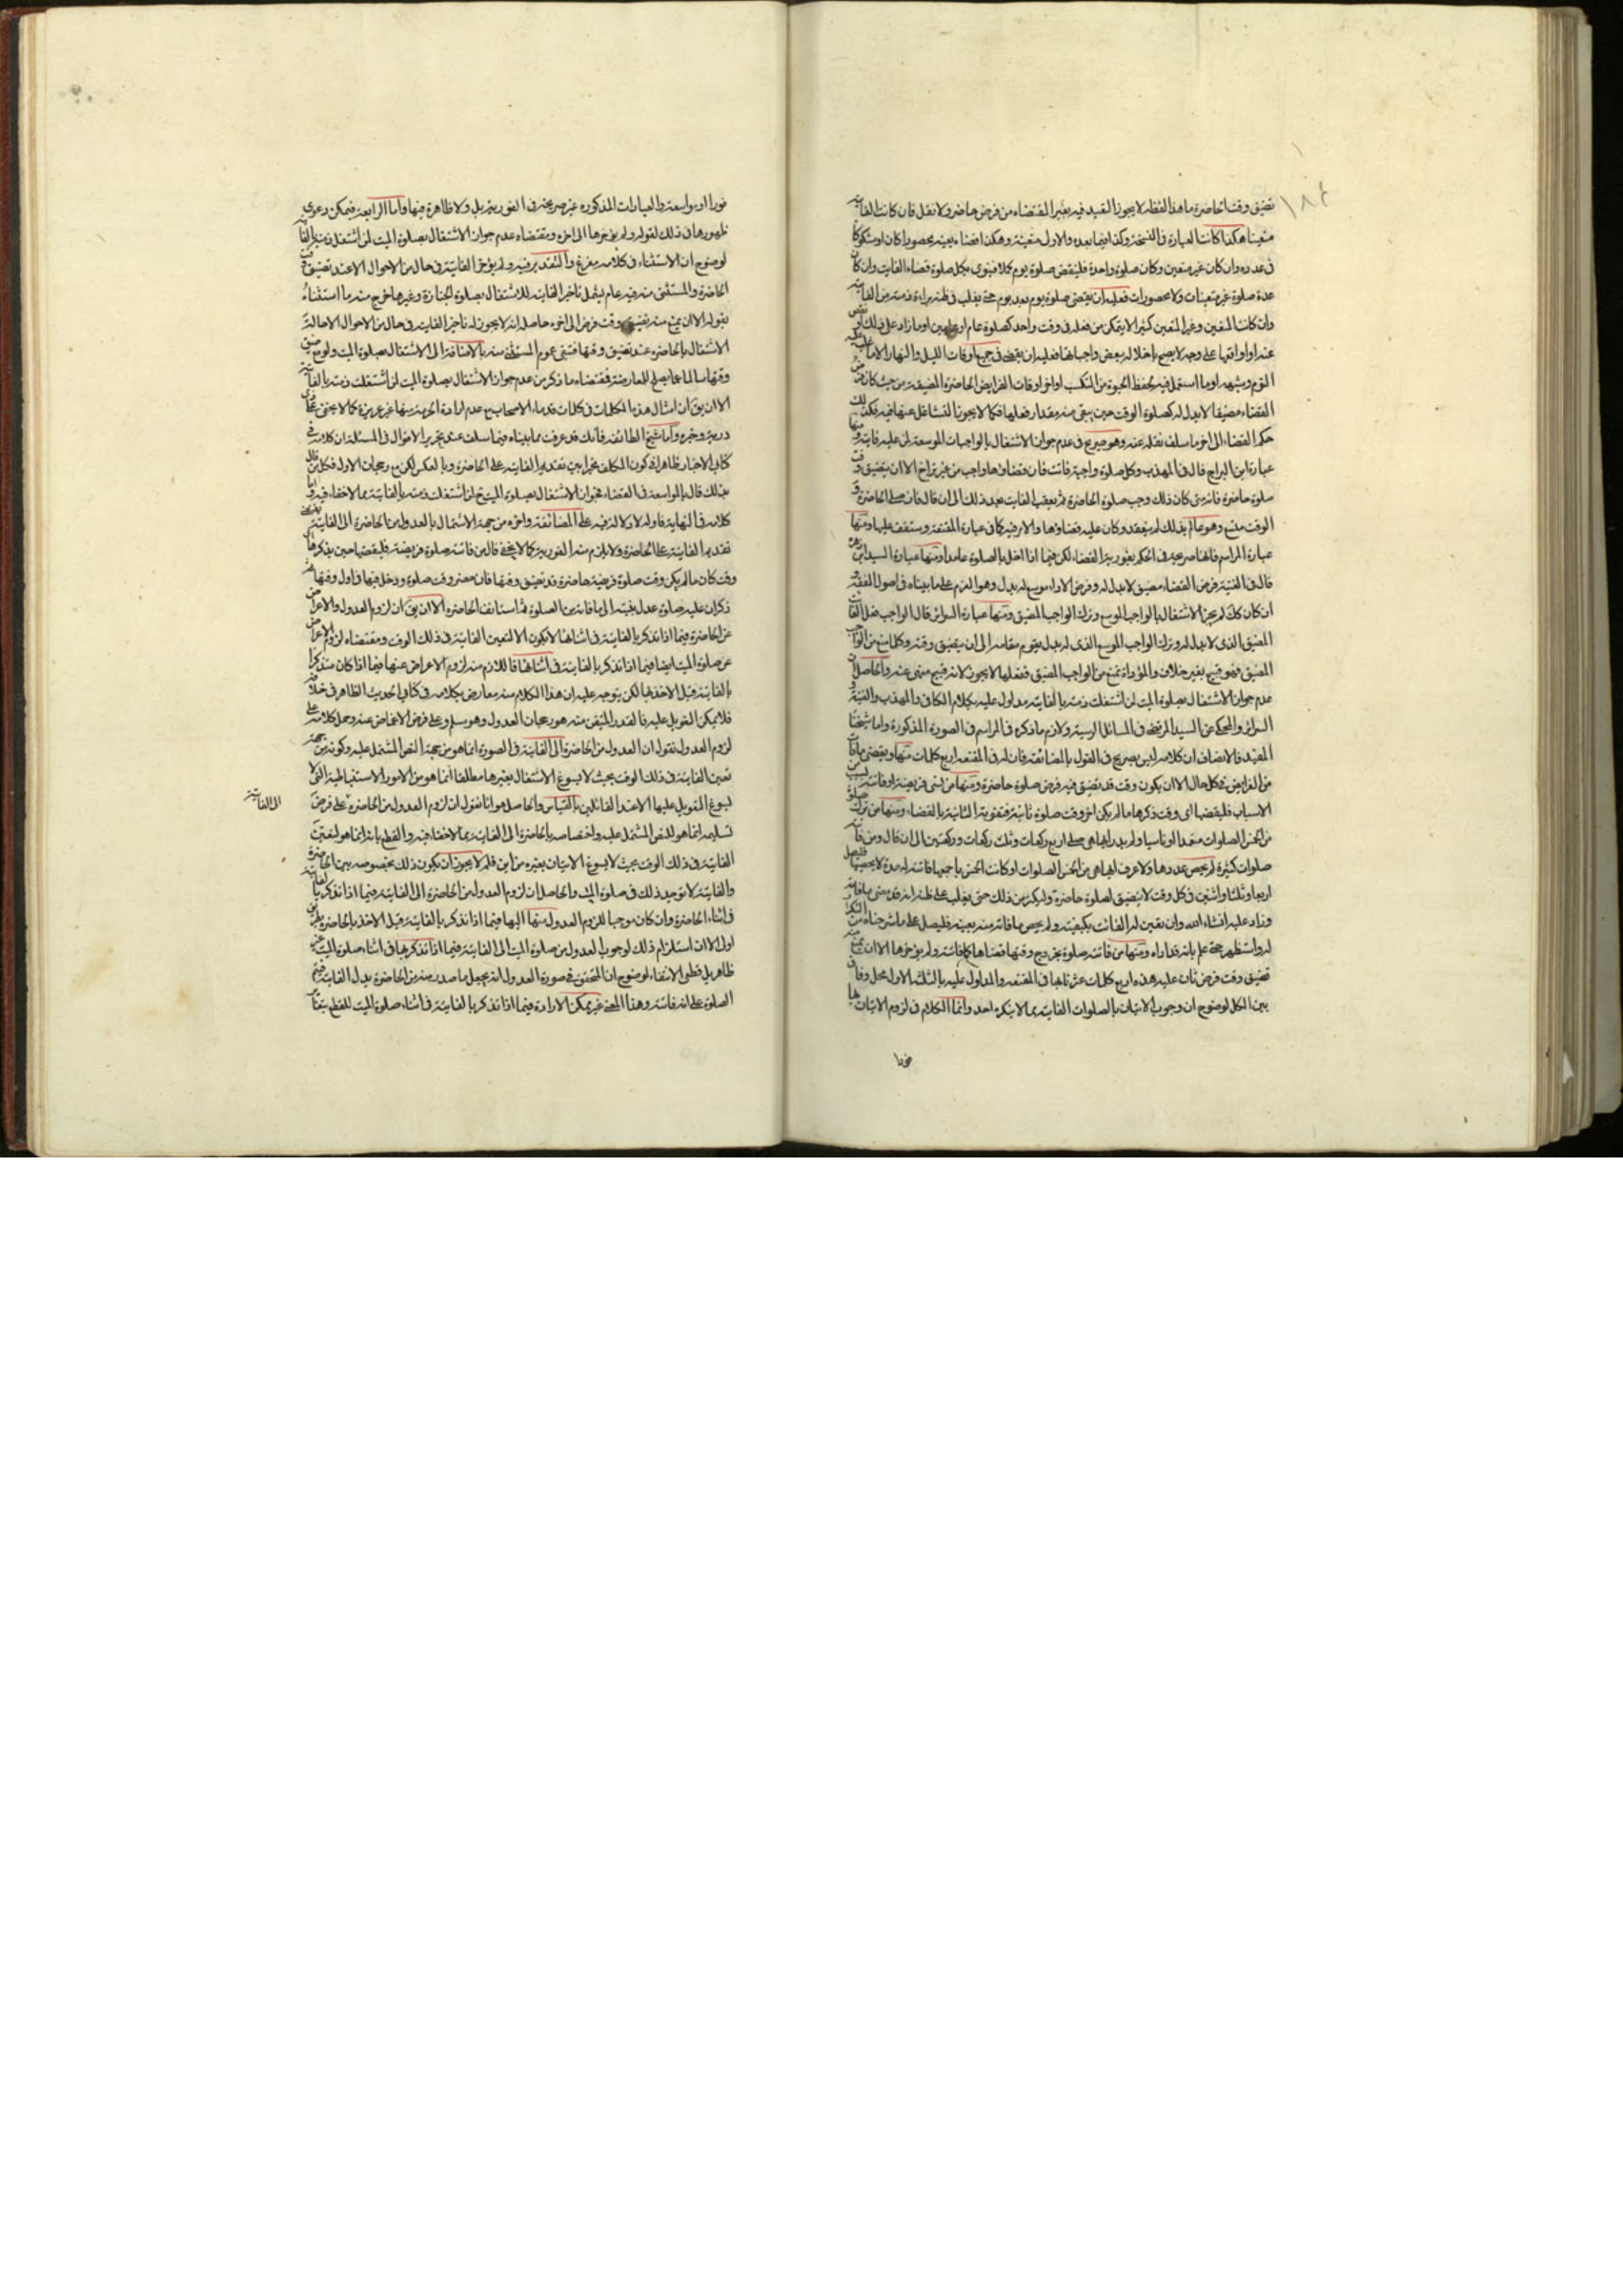 ١٨٤
تضيق وقت الحاضرة ما هذا لفظه لا يجوز التقييد فيه بغير القضاء من فرض حاضر ولا نفل فان كانت الفايتة
متعينا هكذا كانت العبارة في النسخة وكذا فيما بعده والاولى متعينة وهكذا قضاء بعينه محصورا كان او مشكوكا
في عدده وان كان غير متعين وكان صلوة واحدة فليقض صلوة يوم كملا فينوى بكل صلوة قضاء الفايت وان كان
عدة صلوة غير متعينات ولا محصورات فعليه ان يقضى صلوة يوم بعد يوم حتى يغلب في ظنه براءة ذمته من الفايتة
وان كانت المتعين وغير المتعين كثيرا لا يتمكن من فعله في وقت واحد كصلوة عام او عامين او ما زاد على ذلك او نقص
عنه او اوقاتها على وجه لا يصح باخلاله ببعض واجباتها فعليه ان يقضى في جميع اوقات الليل والنهار الا ما غلب عليه
النوم وشبهه او ما استعمل فيه لحفظ الحيوة من التكسب اواخر اوقات الفرايض الحاضرة المضيقة من حيث كان فرض
القضاء مضيقا لا بدل له كصلوة الوقت حين يبقى منه مقدار فعلها فكما لا يجوز التشاغل عنها بغيره فكذلك
حكم القضاء الى اخر ما سلف نقله عنه وهو صريح في عدم جواز الاشتغال بالواجبات الموسعة لمن عليه فايتة ومنها
عبارة ابن البراج قال في المهذب وكل صلوة واجبة فاتت فان قضاؤها واجب من غير تراخ الا ان يتضيق وقت
صلوة حاضرة فانه متى كان ذلك وجب صلوة الحاضرة ثم يعقب الفايت بعد ذلك الى ان قال فان صلى الحاضرة و
الوقت متسع وهو عالم بذلك لم ينعقد وكان عليه قضاؤها والامر فيه كما في عبارة المقنعة وستقف عليها ومنها
عبارة المراسم فانها صريحة في الحكم بفورية القضاء لكن فيما اذا اخل بالصلوة عامدا ومنها عبارة السيد ابن زهرة
قال في الغنية فرض القضاء مضيق لا بدل له وفرض الاداء موسع له بدل وهو العزم على ما بيناه في اصول الفقه و
ان كان كك لم يجز الاشتغال بالواجب الموسع وترك الواجب المضيق ومنها عبارة السرائر قال الواجب فعل الفايت
المضيق الذى لا بدل له وترك الواجب الموسع الذى له بدل يقوم مقامه الى ان يتضيق وقته وكلما منع من الواجب
المضيق فهو قبيح بغير خلاف والمؤداة تمنع من الواجب المضيق ففعلها لا يجوز لانه قبيح منهى عنه والحاصل ان
عدم جواز الاشتغال بصلوة الميت لمن اشتغلت ذمته بالفايتة مدلول عليه بكلام الكافى والمهذب والغنية و
السرائر والمحكى عن السيد المرتضى في المسائل الرسية ولازم ما ذكره في المراسم في الصورة المذكورة واما شيخنا
المفيد فالانصاف ان كلامه ليس بصريح في القول بالمضائقة فان له في المقنعة اربع كلمات منها ويقضى ما فات
من الفرايض في كل حال الا ان يكون وقت قد تضيق فيه فرض صلوة حاضرة ومنها من نسى فريضة او فاتته لسبب من
الاسباب فليقضها اى وقت ذكرها ما لم يكن اخر وقت صلوة ثانية فتفوته الثانية بالقضاء ومنها من ترك صلوة
من الخمس الصلوات متعمدا او ناسيا ولم يدر ايها هى صلى اربع ركعات وثلث ركعات وركعتين الى ان قال ومن فاته
صلوات كثيرة لم يحص عددها ولا عرف ايها هى من الخمس الصلوات او كانت الخمس باجمعها فاتته له مدة لا يحصيها فليصل
اربعا وثلثا واثنتين في كل وقت لا يتضيق لصلوة حاضرة وليكرر من ذلك حتى يغلب على ظنه انه قد قضى ما فاته
وزاد عليه انشاء الله وان تعين له الفائت بكيفيته ولم يحص ما فاته منه بعينه فليصل على ما شرحناه من التكرار
له واستظهر حتى علم بانه قد اداه ومنها من فاتته صلوة بخروج وقتها قضاها كما فاتته ولم يؤخرها الا ان يمنع منه
تضيق وقت فرض ثان عليه هذه اربع كلمات عثرنا بها في المقنعة والمدلول عليه بالثلثة الاول محل وفاق
بين الكل لوضوح ان وجوب الاتيان بالصلوات الفايتة مما لا ينكره احد وانما الكلام في لزوم الاتيان بها
فورا
فورا او بواسعة والعبارات المذكورة غير صريحة في الفورية بل ولا ظاهرة فيها واما الرابعة فيمكن دعوى
ظهورها في ذلك لقوله ولم يؤخرها الى اخره ومقتضاه عدم جواز الاشتغال بصلوة الميت لمن اشتغل ذمته بالفايتة
لوضوح ان الاستثناء في كلامه مفرغ والتقدير فيه ولم يؤخر الفايتة في حال من الاحوال الا عند تضيق وقت
الحاضرة والمستثنى منه فيه عام يشمل تاخير الفايتة للاشتغال بصلوة الجنازة وغيرها خرج منه ما استثناه
بقوله الا ان يمنع منه تضيق وقت فرض الى اخره حاصله انه لا يجوز له تاخير الفايتة في حال من الاحوال الا حالة
الاشتغال بالحاضرة عند تضيق وقتها فتبقى عموم المستثنى منه بالاضافة الى الاشتغال بصلوة الميت ولو مع ضيق
وقتها سالما عما يصلح للمعارضة فمقتضاه ما ذكر من عدم جواز الاشتغال بصلوة الميت لمن اشتغلت ذمته بالفايتة
الا ان يق ان امثال هذه الكلمات في كلمات قدماء الاصحاب مع عدم ارادة الحرمة منها غير عزيزة كما لا يخفى على ذى
دربة وخبرة واما شيخ الطائفة فانك قد عرفت مما بيناه فيما سلف عند تحرير الاقوال في المسئلة ان كلامه في
كتابى الاخبار ظاهر في كون المكلف مخيرا بين تقديم الفايتة على الحاضرة وبالعكس لكن مع رجحان الاول فكل من قال
بذلك قال بالمواسعة في القضاء فجواز الاشتغال بصلوة الميت ح لمن اشتغلت ذمته بالفايتة مما لا خفاء فيه واما
كلامه في النهاية فاوله لا دلالة فيه على المضائقة واخره من جهة الاشتمال بالعدول من الحاضرة الى الفايتة يقتضى
تقديم الفايتة على الحاضرة ولا يلزم منه الفورية كما لا يخفى قال من فاتته صلوة فريضة فليقضها حين يذكرها اى
وقت كان ما لم يكن وقت صلوة فريضة حاضرة قد تضيق وقتها فان حضر وقت صلوة ودخل فيها في اول وقتها ثم
ذكر ان عليه صلوة عدل بنيته الى ما فاته من الصلوة ثم استانف الحاضرة الا ان يق ان لزوم العدول والاعراض
عن الحاضرة فيما اذا تذكر بالفايتة في اثنائها لا يكون الا لتعين الفايتة في ذلك الوقت ومقتضاه لزوم الاعراض
عن صلوة الميت ايضا فيما اذا تذكر بالفايتة في اثنائها فاللازم منه لزوم الاعراض عنها فيما اذا كان متذكرا
بالفايتة قبل الاخذ بها لكن يتوجه عليه ان هذا الكلام منه معارض بكلامه في كتابى الحديث الظاهر في خلافه
فلا يمكن التعويل عليه فالقدر المتيقن منه هو رجحان العدول وهو مسلم وعلى فرض الاغماض عنه وحمل كلامه على
لزوم العدول نقول ان العدول من الحاضرة الى الفايتة في الصورة انما هو من جهة النص المشتمل عليه وكونه من جهة
تعين الفايتة في ذلك الوقت بحيث لا يسوغ الاشتغال بغيرها مطلقا انما هو من الامور الاستنباطية التى لا
يسوغ التعويل عليها الا عند القائلين بالقياس والحاصل هو انا نقول ان لزوم العدول من الحاضرة على فرض
الى الفايتة
تسليمه انما هو للنص المشتمل عليه واختصاصه بالحاضرة الى الفايتة مما لا خفاء فيه والقطع بانه انما هو لتعين
الفايتة في ذلك الوقت بحيث لا يسوغ الاتيان بغيره من اين فلم لا يجوز ان يكون ذلك بخصوصه بين الحاضرة
والفايتة لا توجد ذلك في صلوة الميت والحاصل ان لزوم العدول من الحاضرة الى الفايتة فيما اذا تذكر بالفايتة
في اثناء الحاضرة وان كان موجبا للزوم العدول منها اليها فيما اذا تذكر بالفايتة قبل الاخذ بالحاضرة بطريق
اولى الا ان استلزام ذلك لوجوب العدول من صلوة الميت الى الفايتة فيما اذا تذكرها في اثناء صلوة الميت غير
ظاهر بل قطعى الانتفاء لوضوح ان المتحقق في صورة العدول انه يجعل ما صدر منه من الحاضرة بدل الفايتة فيتم
الصلوة على انه فايتة وهذا المعنى غير ممكن الارادة فيما اذا تذكر بالفايتة في اثناء صلوة الميت للقطع